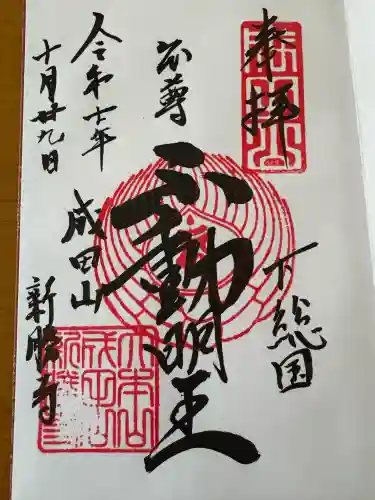 奉拝
下総国
本尊
不動明王
成田山
新勝寺
令和七年
十月廿九日